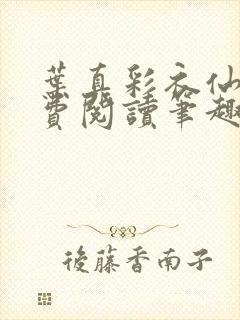 葉真彩衣仙
費閱讀筆趣
後藤香南子